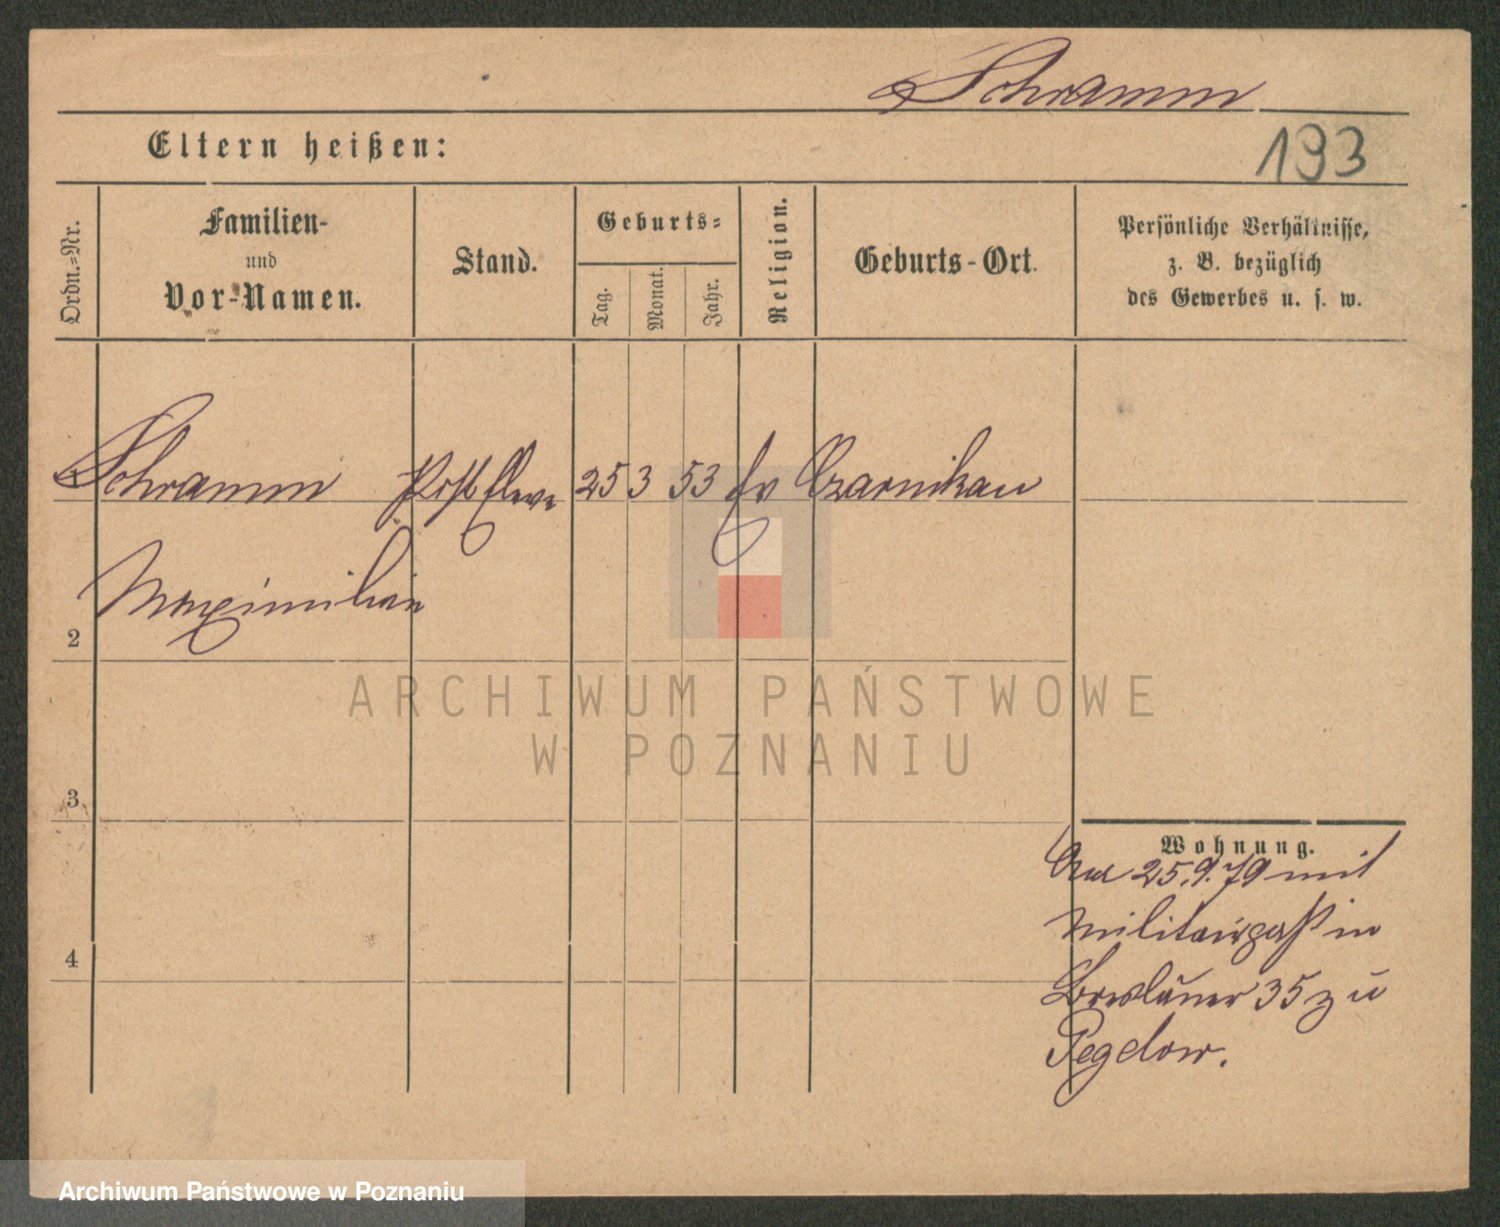 Schramm
Eltern heißen:
193
Ordn.=Nr.
Familien-
und
Vor-Namen.
Stand.
Geburts=
Tag.
Monat.
Jahr.
Religion.
Geburts-Ort.
Persönliche Verhältnisse,
z. B. bezüglich
des Gewerbes u. s. w.
Schramm Post Eleve 25 3 53 Ev Czarnikau
Maximilian
2
ARCHIWUM PAŃSTWOWE
W POZNANIU
3
Wohnung.
25.9.79 mit
Militairpaß in
Breslauer 35 zu
4
Pegelow.
Archiwum Państwowe w Poznaniu